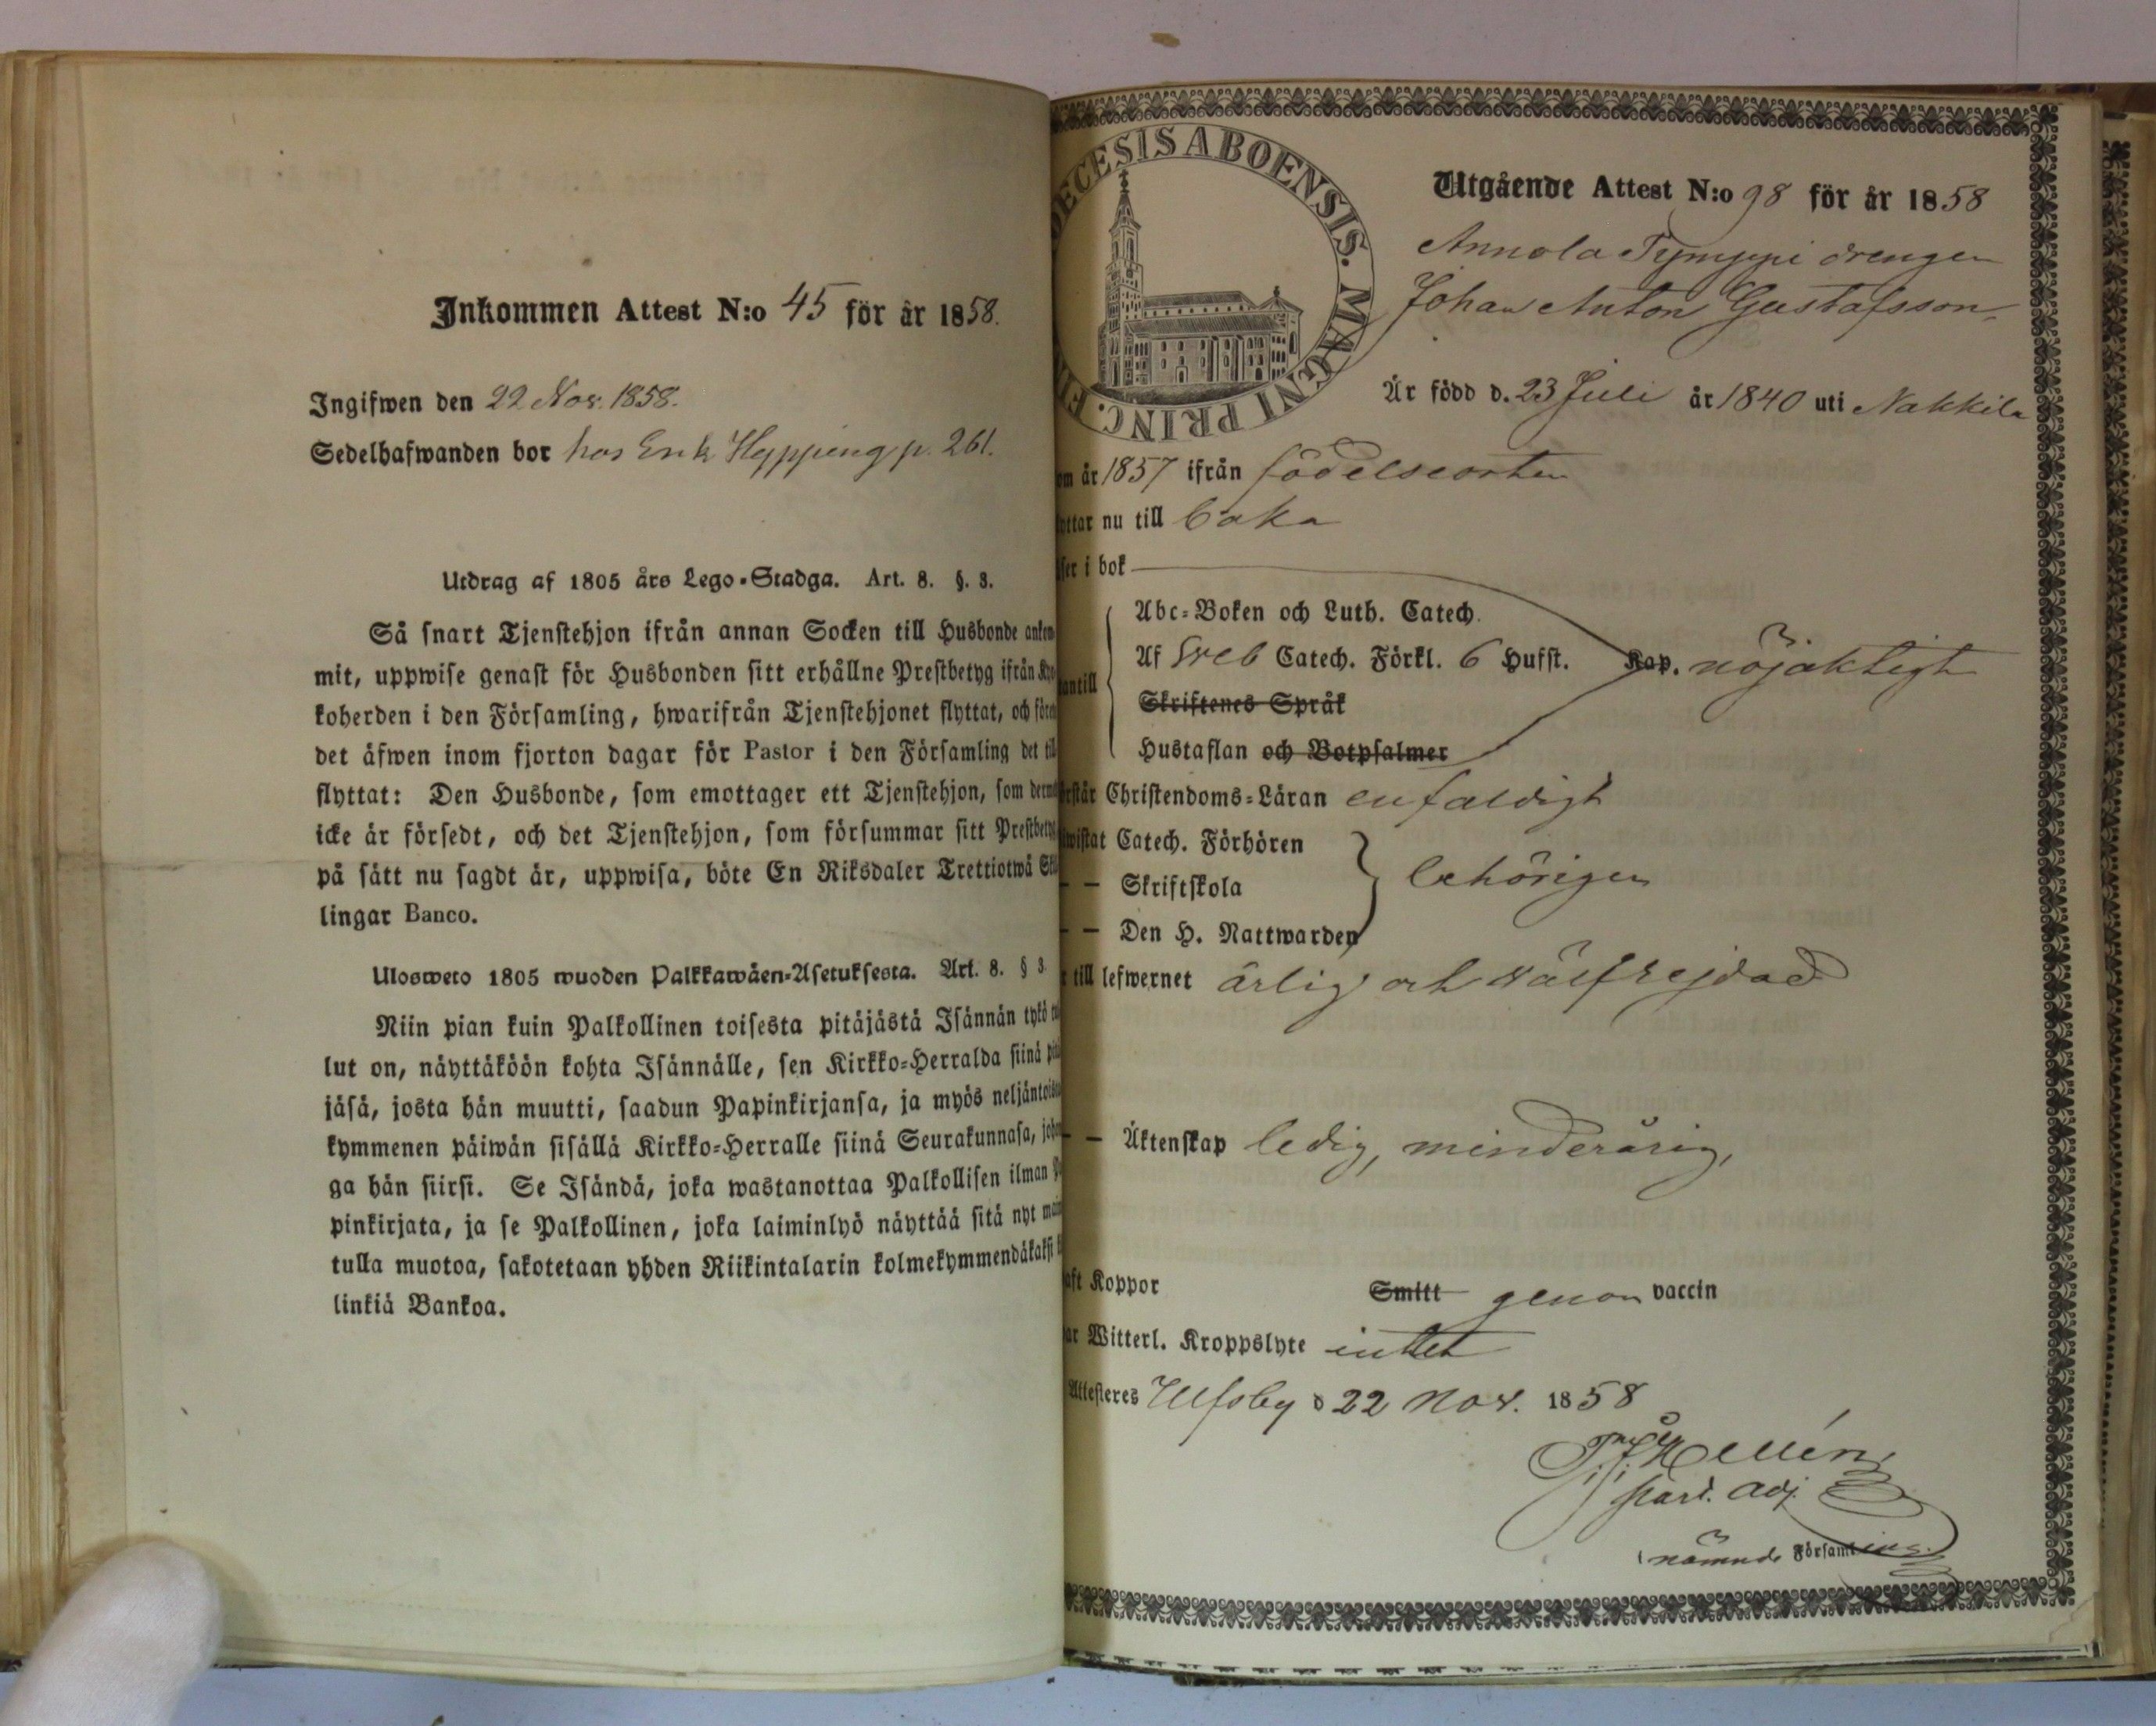 Inkommen Attest N:o 45 för år 1858.
Ingifwen den 22 Nov. 1858.
Sedelhafwanden bor hos Erik Hypping p. 261.
Utdrag af 1805 års Lego-Stadga. Art. 8. §. 3.
Så snart Tjenstehjon ifrån annan Socken till Husbonde ankom
mit, uppwise genast för Husbonden sitt erhållne Prestbetyg ifrån Kyr
koherden i den Församling, hwarifrån Tjenstehjonet flyttat, och före
det äfwen inom fjorton dagar för Pastor i den Församling det till
flyttat: Den Husbonde, som emottager ett Tjenstehjon, som dermed
icke är försedt, och det Tjenstehjon, som försummar sitt Prestbetyg
på sätt nu sagdt är, uppwisa, böte En Riksdaler Trettiotwå Skil
lingar Banco.
Ulosweto 1805 wuoden Palkkawäen-Asetuksesta. Art. 8. § 3
Niin pian kuin Palkollinen toisesta pitäjästä Isännän tykö tul
lut on, näyttäköön kohta Isännälle, sen Kirkko-Herralda siinä pitä
jäsä, josta hän muutti, saadun Papinkirjansa, ja myös neljäntoista
kymmenen päiwän sisällä Kirkko-Herralle siinä Seurakunnasa, johon
ga hän siirsi. Se Isändä, joka wastanottaa Palkollisen ilman Pa
pinkirjata, ja se Palkollinen, joka laiminlyö näyttää sitä nyt mai
tulla muotoa, sakotetaan yhden Riikintalarin kolmekymmendäkaksi kil
linkiä Bankoa.
DECESIS ABOENSIS. MAGNI PRINC. FI
Utgående Attest N:o 98 för år 1858
Annola Tymppi drengen
Johan Anton Gustafsson
Är född d. 23 Juli år 1840 uti Nakkila
om år 1857 ifrån födelseorten
yttar nu till baka
ser i bok
Abc-Boken och Luth. Catech.
antill Af Sveb Catech. Förkl. 6 Hufst. Kap. nöjaktigt
Skriftenes Språk
Hustaflan och Botpsalmer
rstår Christendoms-Läran enfaldigt
wistat Catech. Förhören
— — Skriftskola behörigen
— — Den H. Nattwarden
r till lefwernet ärlig och wälfrejdad
— — Äktenskap ledig, minderårig,
aft Koppor Smitt genom vaccin
ar Witterl. Kroppslyte intet
Attesteres Ulfsby d 22 Nov. 1858
Hellén
Past. adj.
i nämnde Församling